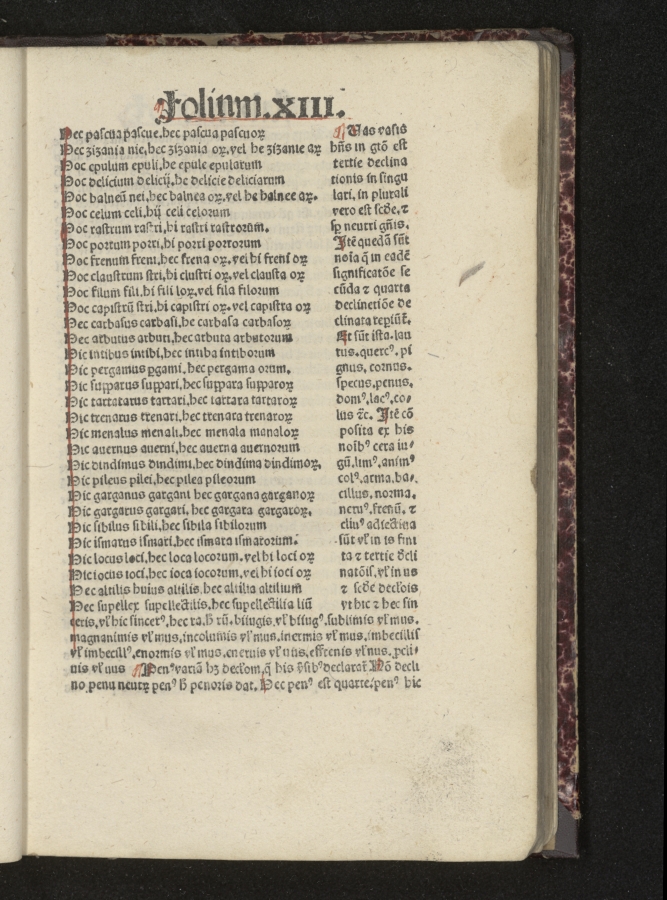 Folium.XIII.
Hec pascua pascue,hec pascua pascuoꝝ
Hec zizania nie,hec zizania oꝝ,vel he zizanie aꝝ
Hoc epulum epuli,he epule epularum
Hoc delicium delicij,he delicie deliciarum
Hoc balneū nei,hec balnea oꝝ,vel he balnee aꝝ.
Hoc celum celi,hij celi celorum
Hoc rastrum rastri,hi rastri rastrorum.
Hoc porrum porri,hi porri porrorum
Hoc frenum freni,hec frena oꝝ,vel hi freni oꝝ
Hoc claustrum stri,hi clustri oꝝ,vel clausta oꝝ
Hoc filum fili,hi fili loꝝ,vel fila filorum
Hoc capistrū stri,hi capistri oꝝ.vel capistra oꝝ
Hec carbasus carbasi,he carbasa carbasoꝝ
Hec arbutus arbuti,hec arbuta arbutorum
Hic intibus intibi,hec intiba intiborum
Hic pergamus ꝑgami,hec pergama orum.
Hic supparus suppari,hec suppara supparoꝝ
Hic tartatarus tartari,hec tartara tartaroꝝ
Hic trenarus trenari,hec trenara trenaroꝝ
Hic menalus menali,hec menala manaloꝝ
Hic auernus auerni,hec auerna auernorum
Hic dindimus dindimi,hec dindima dindimoꝝ.
Hic pileus pilei,hec pilea pileorum
Hic garganus gargani hec gargana garganoꝝ
Hic gargarus gargari,hec gargara gargaroꝝ.
Hic sibilus sibili,hec sibila sibilorum
Hic ismarus ismari,hec ismara ismarorum.
Hic locus loci,hec loca locorum.vel hi loci oꝝ
Hic iocus ioci,hec ioca iocorum.vel hi ioci oꝝ
Hec altilis huius altilis,hec altilia altilium
Hec supellex supellectilis,hec supellectilia liū
¶ Vas vasis
bn̄s in gtō est
tertie declina
tionis in singu
lari,in plurali
vero est scḏe,⁊
sꝑ neutri gn̄is.
Itē quedā sūt
noīa q̄ in eadē
significatōe se
cūda ⁊ quarta
declinetiōe de
clinata reꝑiūt̄.
Et sūt ista.lau
rus.quercꝰ.pi
gnus,cornus.
specus,penus,
domꝰ,lacꝰ,co⸗
lus ⁊c. Itē cō
posita ex his
noībꝰ cera iu⸗
gū,limꝰ,animꝰ
colꝰ,arma,ba⸗
cillus,norma,
neruꝰ,frenū,⁊
cliuꝰ adiectiua
sūt vl̓ in is fini
ta ⁊ tertie d̓cli
natōis,vl̓ in us
⁊ scḏe decl̓ois
vt hic ⁊ hec sin
ceris,vl̓ hic sincerꝰ,hec ra,h̄ rū.biiugis.vl̓ biiugꝰ,sublimis vl̓ mus.
magnanimis vl̓ mus,incolumis vl̓ mus,inermis vl̓ mus,imbecillis
vl̓ imbecillꝰ,enormis vl̓ mus,eneruis vl̓ uus,effrenis vl̓ nus,ꝓcli⸗
uis vl̓ uus ¶ Penꝰ variā hꝫ decl̓om,q̄ his ṽsibꝰ declarat̄ Nō decli
no penu neutꝝ penꝰ h̄ penoris dat. Hec penꝰ est quarte,penꝰ hic